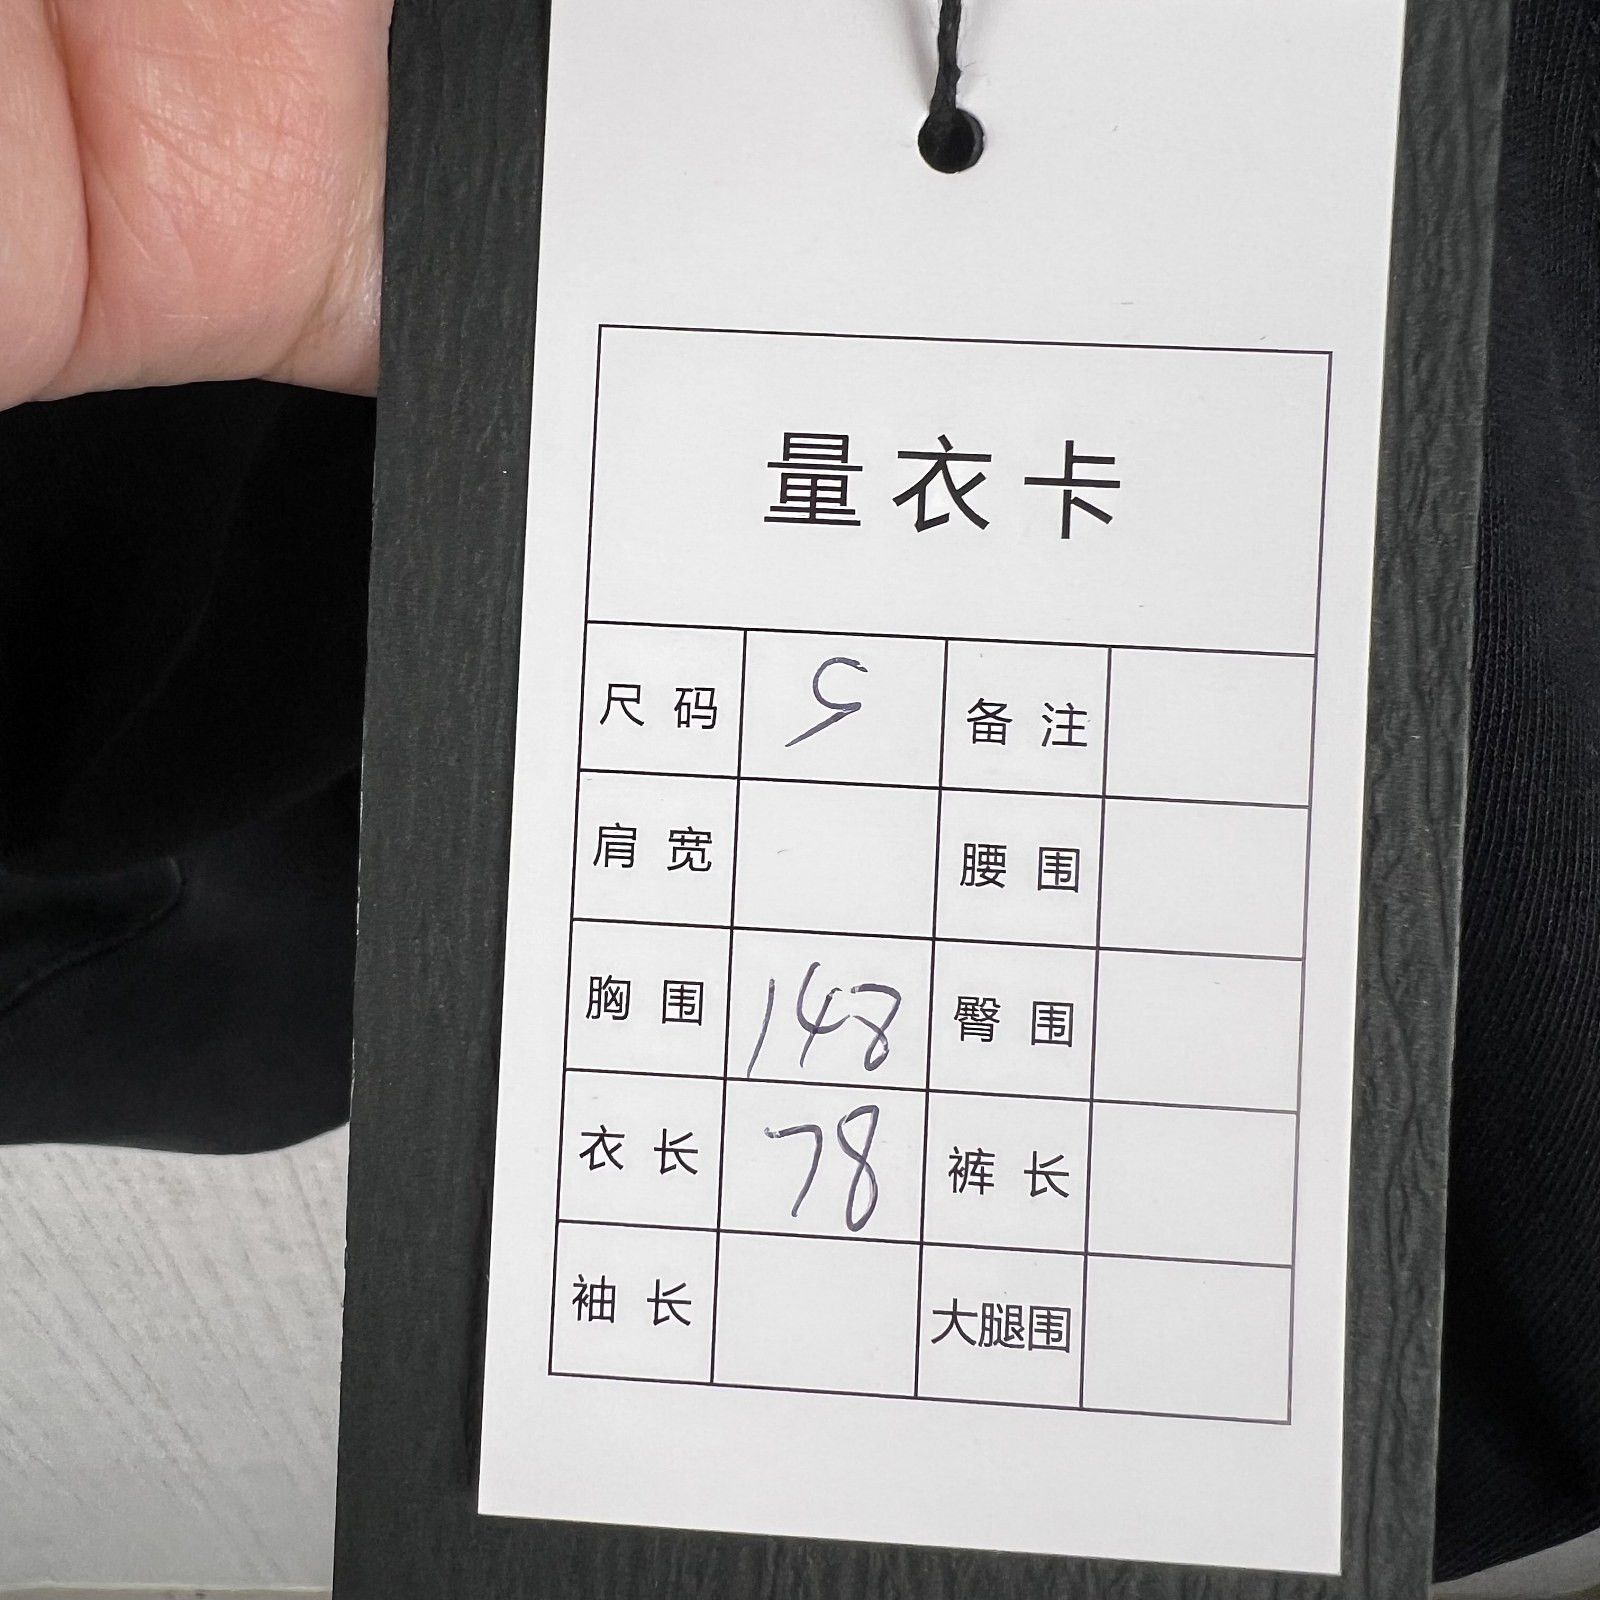 量衣卡
尺码 S 备注
肩宽 腰围
胸围 148 臀围
衣长 78 裤长
袖长 大腿围